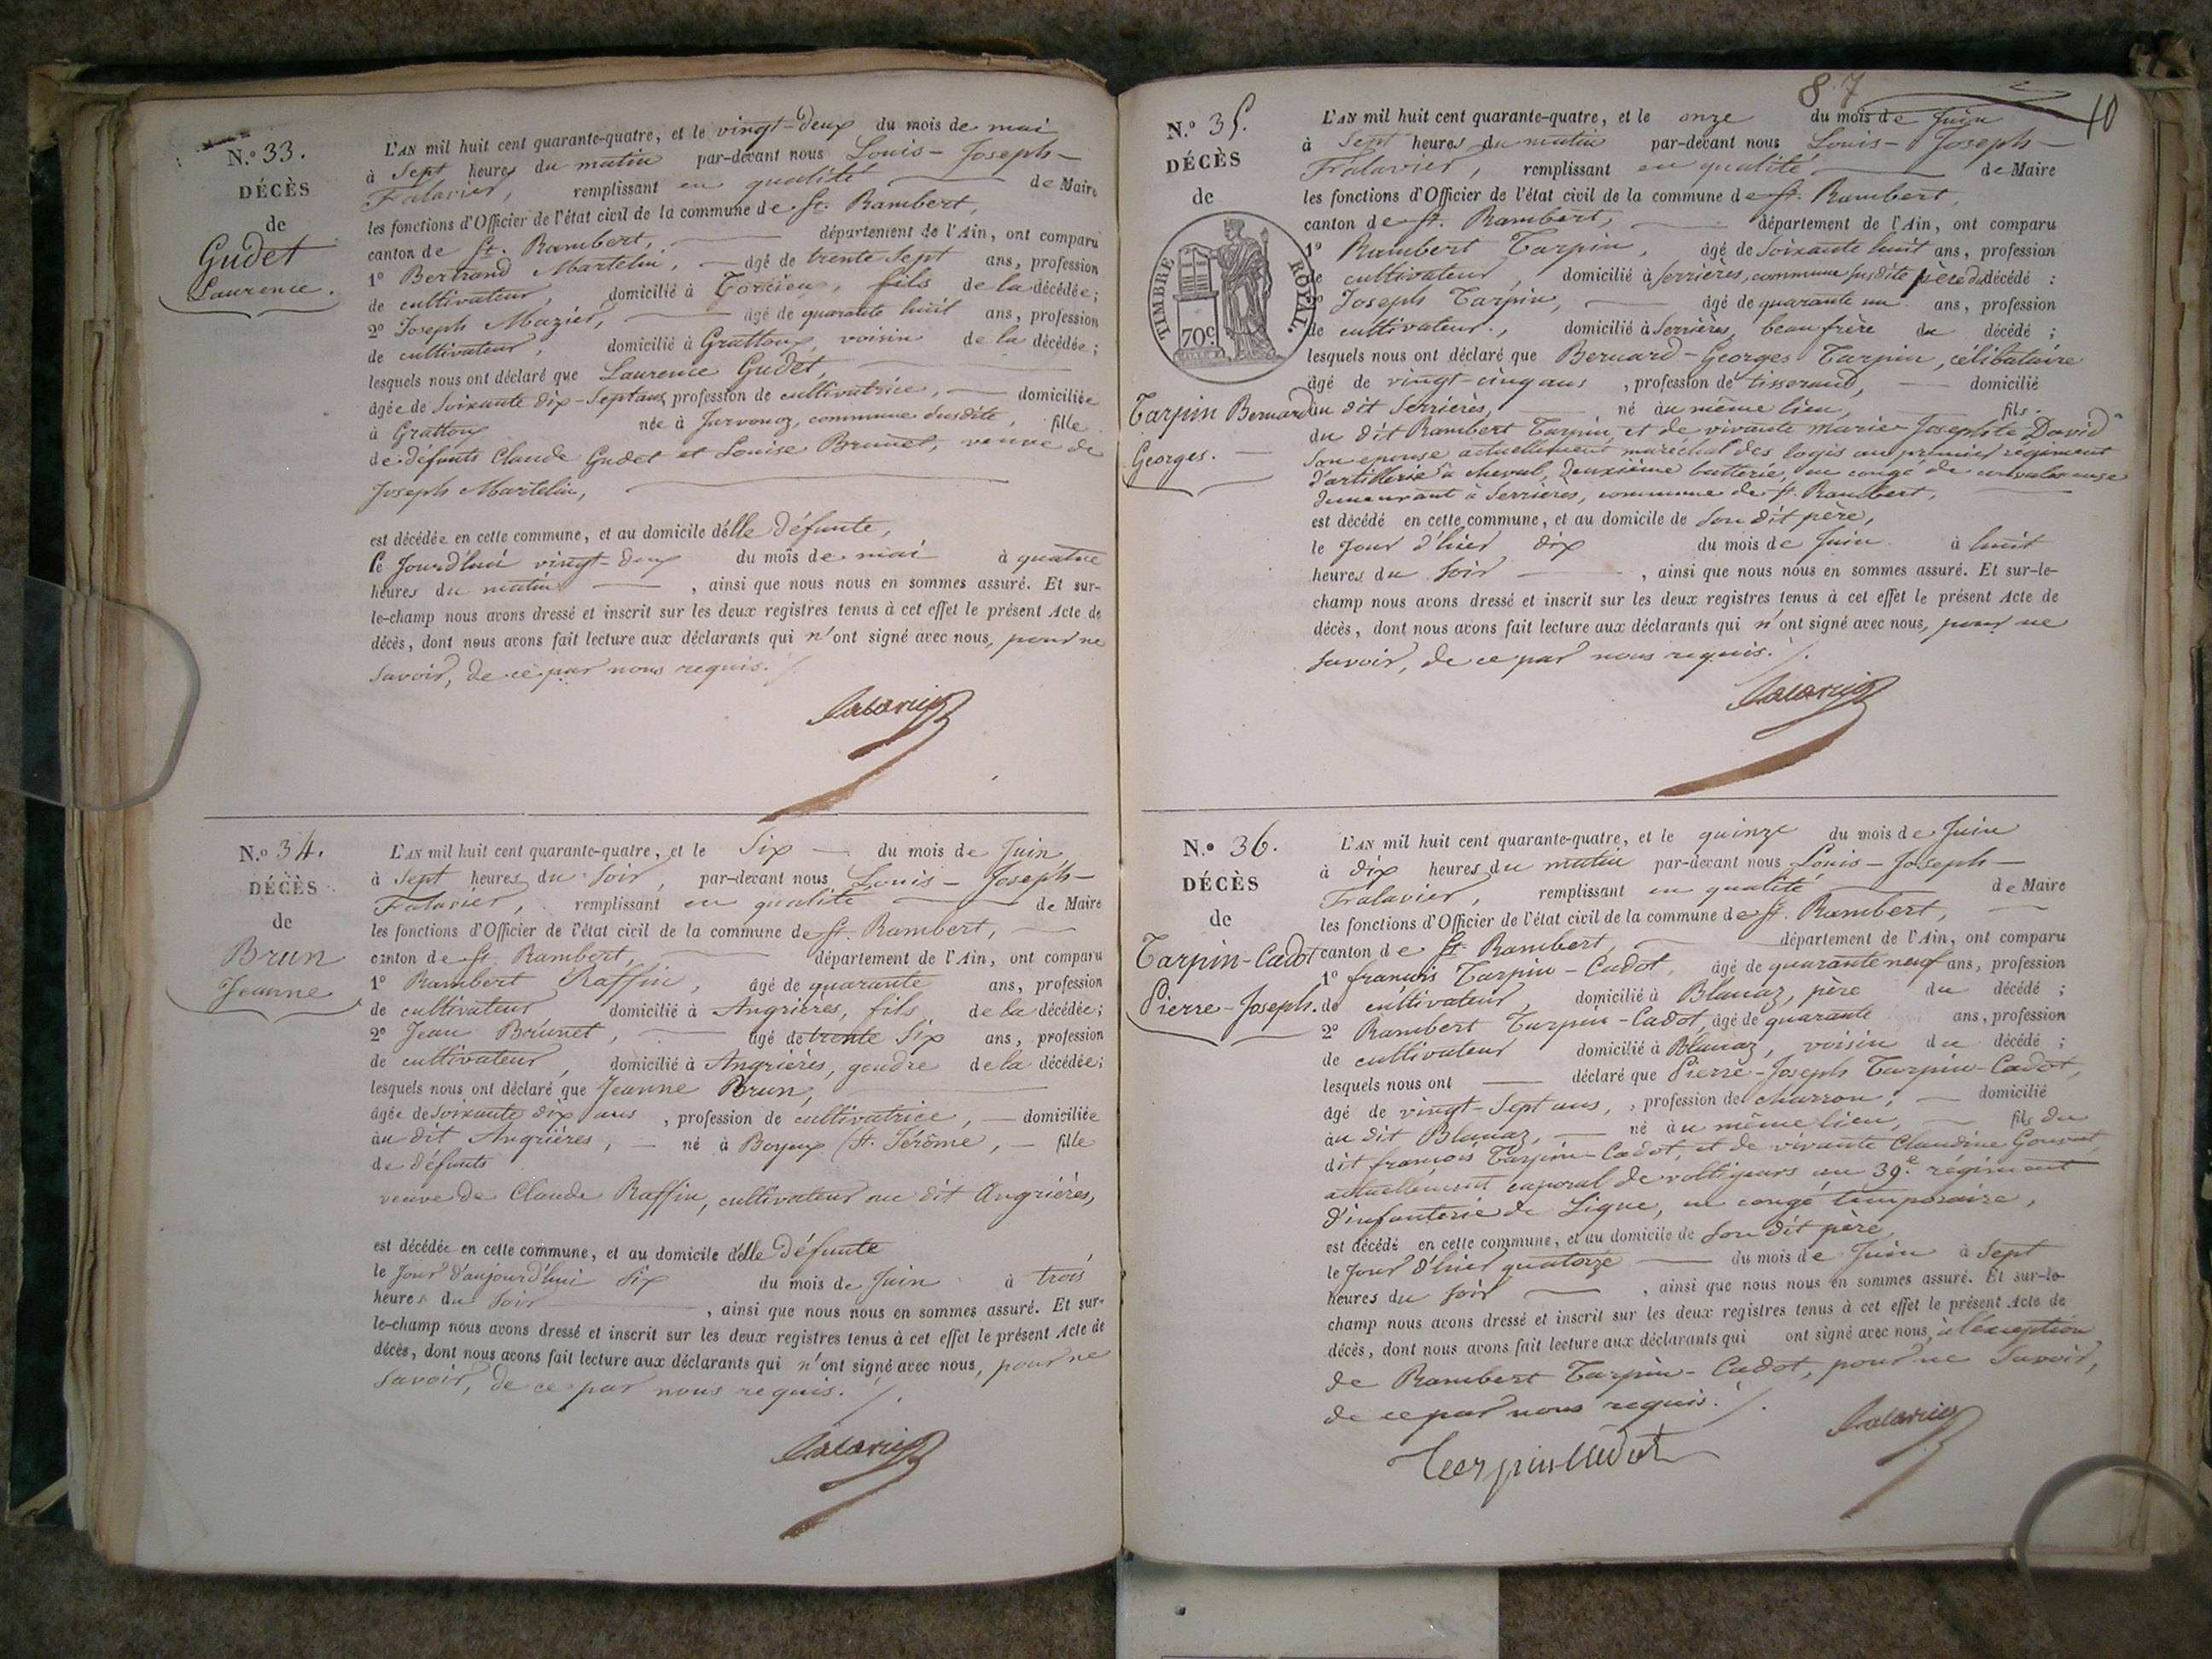 N.º 33.
DÉCÈS
de
Gudet
Laurence.
L'AN mil huit cent quarante-quatre, et le vingt-deux du mois de mai
à Sept heures du matin par-devant nous Louis-Joseph-
Falavier, remplissant en qualité de Maire
les fonctions d'Officier de l'état civil de la commune de St. Rambert,
canton de St. Rambert, département de l'Ain, ont comparu
1º Bertrand Martelin, âgé de trente Sept ans, profession
de cultivateur, domicilié à Torcieu, fils de la décédée;
2º Joseph Mazier, âgé de quarante huit ans, profession
de cultivateur, domicilié à Grattoux, voisin de la décédée;
lesquels nous ont déclaré que Laurence Gudet,
âgée de Soixante dix-Sept ans, profession de cultivatrice, domiciliée
à Grattoux née à Jarvonoz, commune Susdite, fille
de défunts Claude Gudet et Louise Brunet, veuve de
Joseph Martelin,
est décédée en cette commune, et au domicile d'elle défunte,
le Jourd'hui vingt-deux du mois de mai à quatre
heures du matin, ainsi que nous nous en sommes assuré. Et sur-
le-champ nous avons dressé et inscrit sur les deux registres tenus à cet effet le présent Acte de
décès, dont nous avons fait lecture aux déclarants qui n'ont signé avec nous, pour ne
Savoir, de ce par nous requis. /.
N.º 34.
DÉCÈS
de
Brun
Jeanne
L'AN mil huit cent quarante-quatre, et le Six du mois de Juin
à Sept heures du Soir, par-devant nous Louis-Joseph-
Falavier, remplissant en qualité de Maire
les fonctions d'Officier de l'état civil de la commune de St. Rambert,
canton de St. Rambert, département de l'Ain, ont comparu
1º Rambert Raffin, âgé de quarante ans, profession
de cultivateur domicilié à Angrières, fils de la décédée;
2º Jean Brunet, âgé de trente Six ans, profession
de cultivateur, domicilié à Angrières, gendre de la décédée;
lesquels nous ont déclaré que Jeanne Brun,
âgée de Soixante dix ans, profession de cultivatrice, domiciliée
au dit Angrières, né à Boyeux St. Jérôme, fille
de défunts
veuve de Claude Raffin, cultivateur au dit Angrières,
est décédée en cette commune, et au domicile d'elle défunte
le Jour d'aujourd'hui Six du mois de Juin à trois
heures du Soir, ainsi que nous nous en sommes assuré. Et sur-
le-champ nous avons dressé et inscrit sur les deux registres tenus à cet effet le présent Acte de
décès, dont nous avons fait lecture aux déclarants qui n'ont signé avec nous, pour ne
Savoir, de ce par nous requis. /.
87
10
N.º 35.
DÉCÈS
de
TIMBRE ROYAL.
70c
Tarpin Bernard
Georges.
L'AN mil huit cent quarante-quatre, et le onze du mois de Juin
à Sept heures du matin par-devant nous Louis-Joseph-
Falavier, remplissant en qualité de Maire
les fonctions d'Officier de l'état civil de la commune de St. Rambert,
canton de St. Rambert, département de l'Ain, ont comparu
1º Rambert Tarpin, âgé de Soixante huit ans, profession
de cultivateur, domicilié à Serrières, commune susdite père du décédé :
2º Joseph Tarpin, âgé de quarante un ans, profession
de cultivateur, domicilié à Serrières, beau frère du décédé ;
lesquels nous ont déclaré que Bernard-Georges Tarpin, célibataire
âgé de vingt-cinq ans, profession de tisserand, domicilié
au dit Serrières, né au même lieu, fils
du dit Rambert Tarpin, et de vivante Marie-Josephte David
Son épouse actuellement maréchal des logis au premier régiment
d'artillerie à cheval, deuxième batterie, en congé de convalescence
demeurant à Serrières, commune de St. Rambert,
est décédé en cette commune, et au domicile de Son dit père,
le Jour d'hier dix du mois de Juin à huit
heures du Soir, ainsi que nous nous en sommes assuré. Et sur-le-
champ nous avons dressé et inscrit sur les deux registres tenus à cet effet le présent Acte de
décès, dont nous avons fait lecture aux déclarants qui n'ont signé avec nous, pour ne
Savoir, de ce par nous requis. /.
N.º 36.
DÉCÈS
de
Tarpin-Cadot
Pierre-Joseph.
L'AN mil huit cent quarante-quatre, et le quinze du mois de Juin
à dix heures du matin par-devant nous Louis-Joseph-
Falavier, remplissant en qualité de Maire
les fonctions d'Officier de l'état civil de la commune de St. Rambert,
canton de St. Rambert, département de l'Ain, ont comparu
1º françois Tarpin-Cadot, âgé de quarante neuf ans, profession
de cultivateur, domicilié à Blanaz, père du décédé ;
2º Rambert Tarpin-Cadot, âgé de quarante ans, profession
de cultivateur domicilié à Blanaz, voisin du décédé ;
lesquels nous ont déclaré que Pierre-Joseph Tarpin-Cadot,
âgé de vingt-Sept ans, profession de charron, domicilié
au dit Blanaz, né au même lieu, fils du
dit françois Tarpin-Cadot, et de vivante Claudine
actuellement caporal de voltigeurs au 39e. régiment
d'infanterie de Ligne, en congé temporaire,
est décédé en cette commune, et au domicile de Son dit père,
le Jour d'hier quatorze du mois de Juin à Sept
heures du Soir, ainsi que nous nous en sommes assuré. Et sur-le-
champ nous avons dressé et inscrit sur les deux registres tenus à cet effet le présent Acte de
décès, dont nous avons fait lecture aux déclarants qui ont signé avec nous, à l'exception
de Rambert Tarpin-Cadot, pour ne Savoir,
de ce par nous requis. /.
Tarpin Cadot